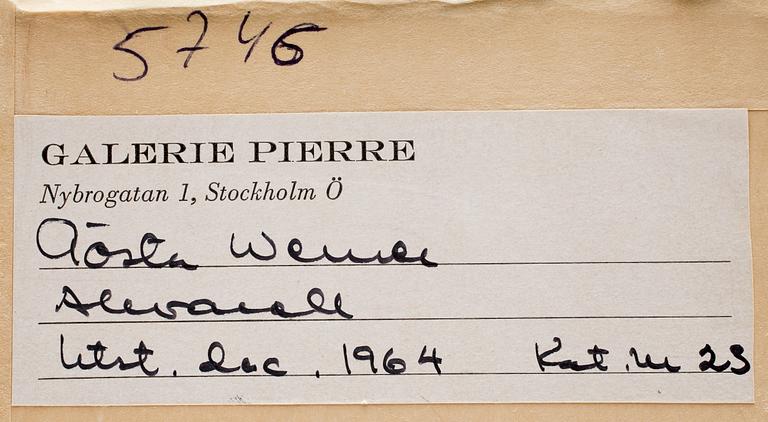 5746
GALERIE PIERRE
Nybrogatan 1, Stockholm Ö
Gösta Werner
Akvarell
Utst. dec. 1964 Kat. nr 23